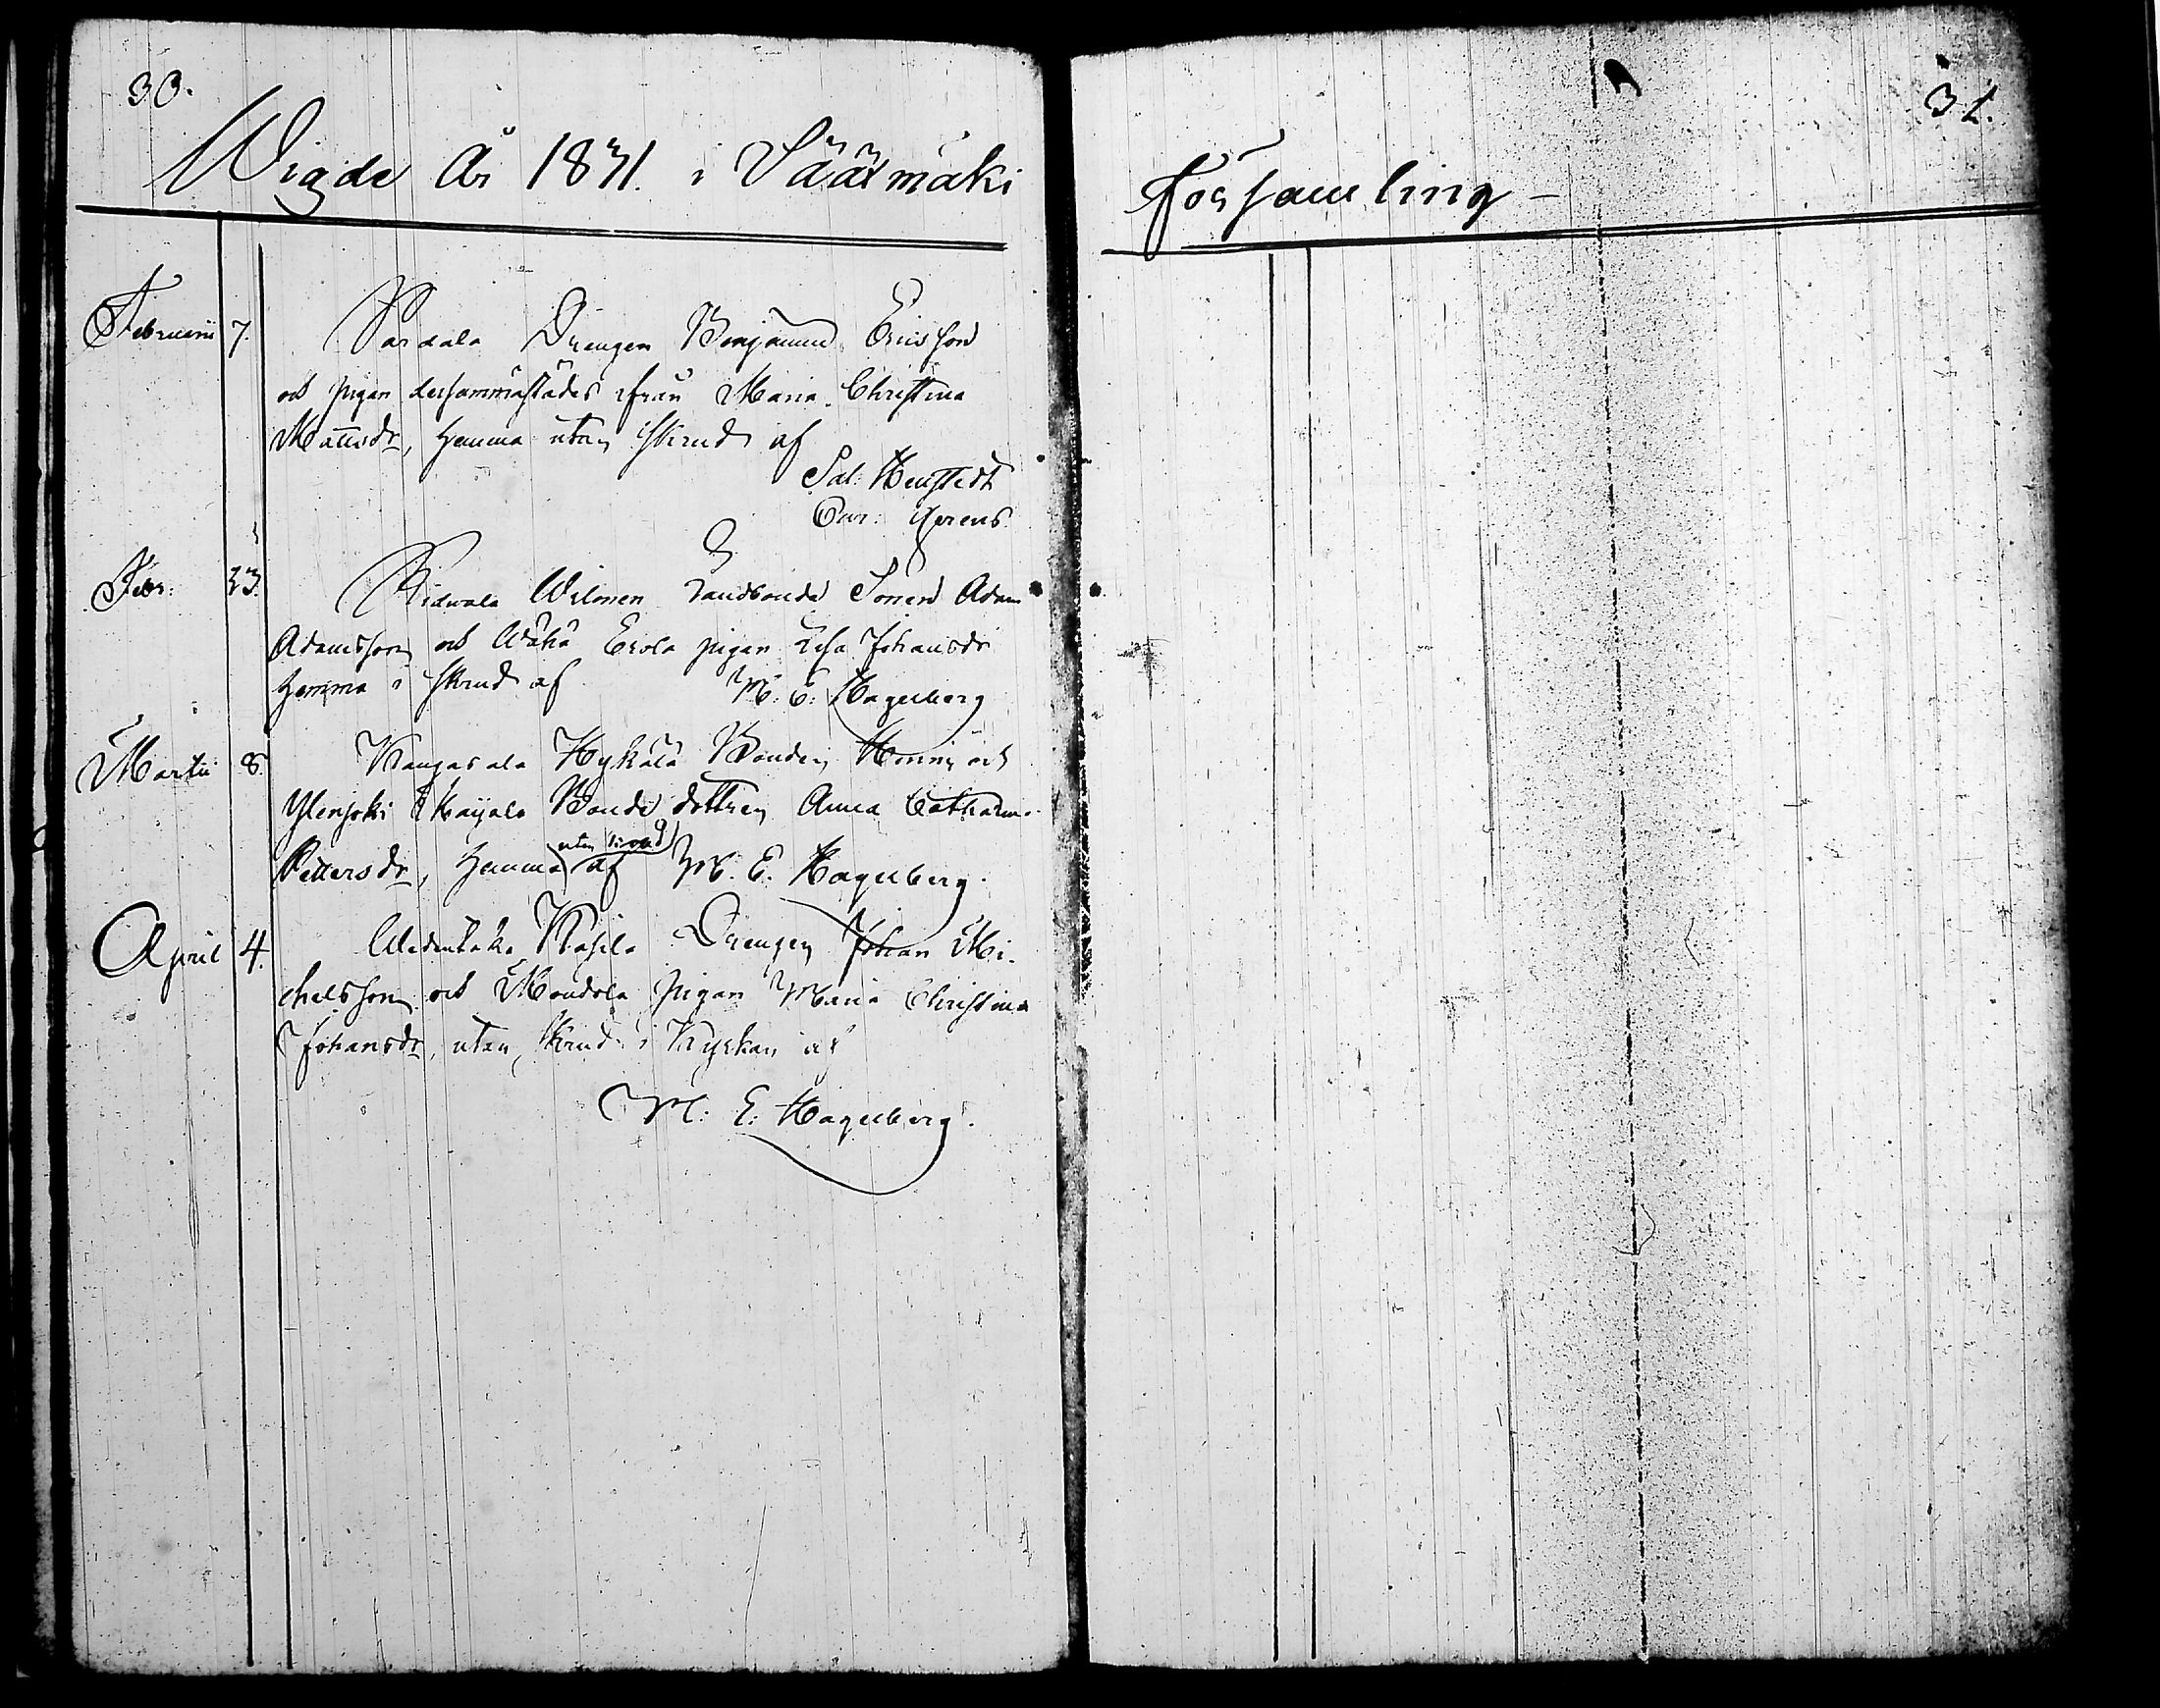 30.
Wigde År 1831. i Sääxmäki
Februarii 7. Drengen Benjamin Ericsson
och pigan dersammastädes ifrån Maria Christina
Mattsdr, hemma utan skrud af
Sal: Henstedt
Febr: 23. Ridvala Wilonen Landbonde Sonen Adam
Adamsson och Wähä Erola pigan Lisa Johansdr
hemma i skrud af M: E: Hagelberg
Martii 8. Kangasala Hykälä Bonden och
Bonde dottren Anna Catharina
utan skrud
Pettersdr, hemma af M. E. Hagelberg.
April 4. Drengen Johan Mi-
chelsson och pigan Maria Christina
Johansdr, utan skrud i Kyrkan af
M: E: Hagelberg.
31.
Församling –